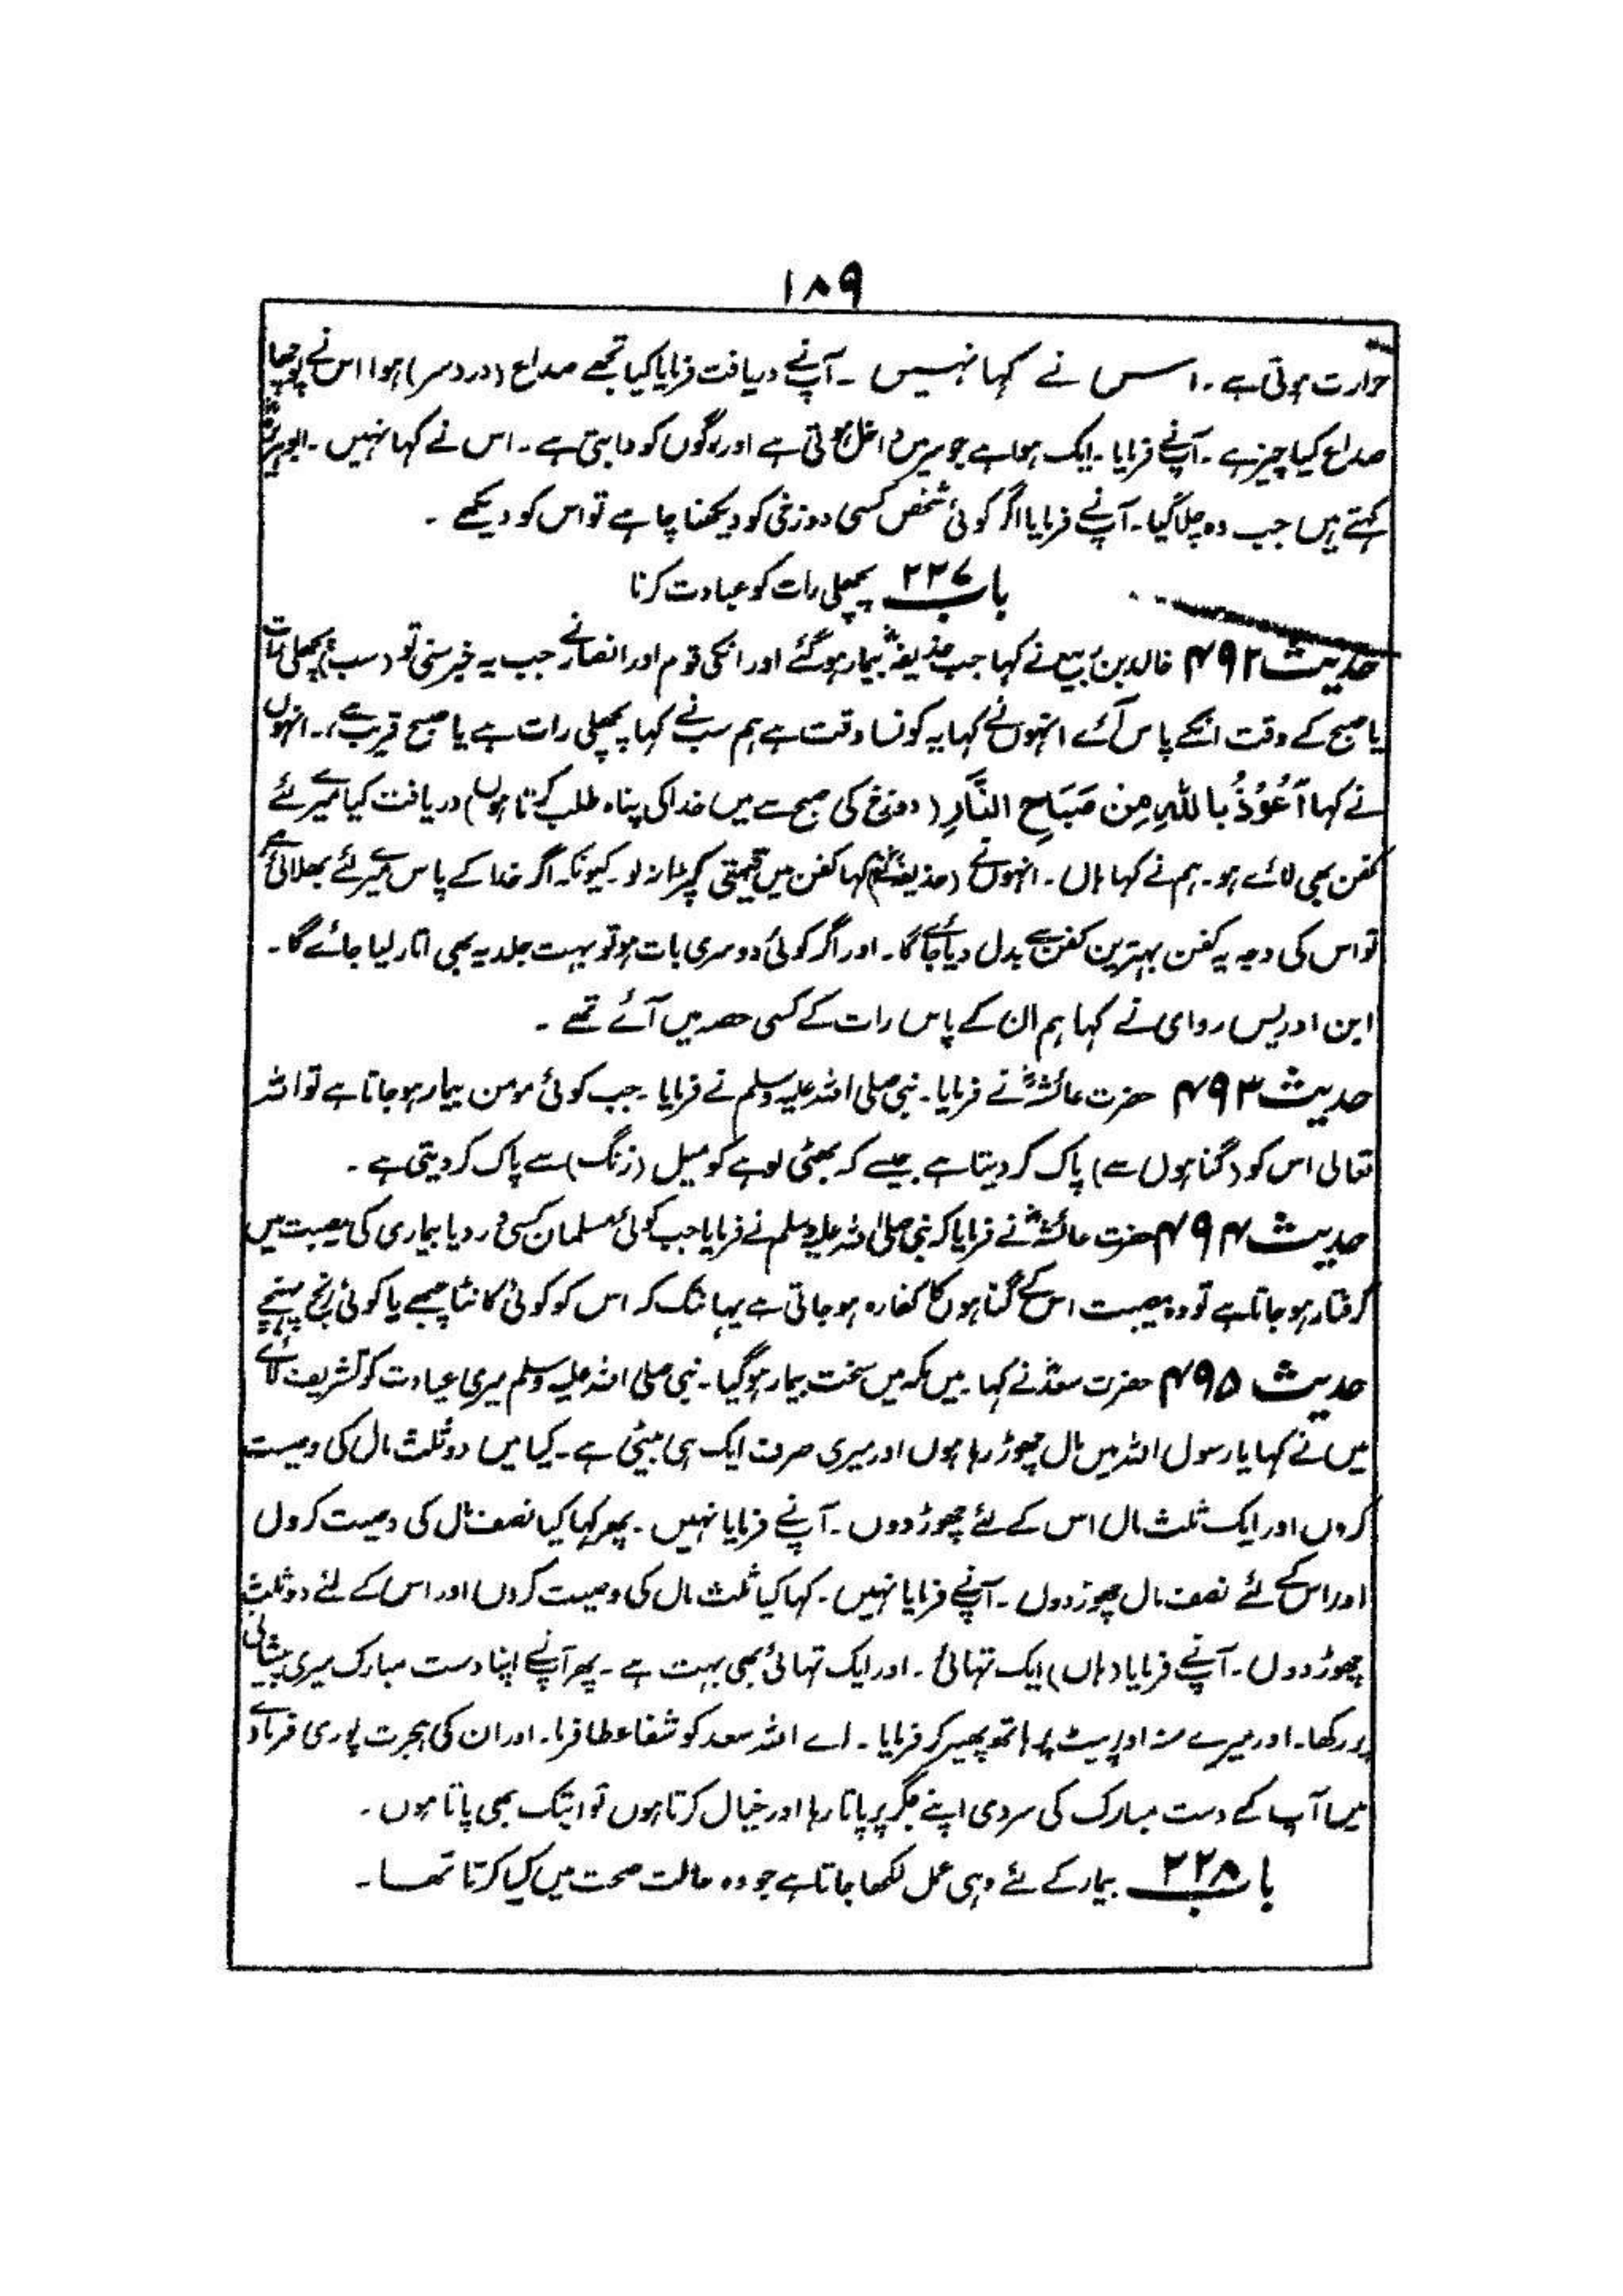 ۱۸۹
حرارت ہوتی ہے ۔ اس نے کہا نہیں ۔ آپنے دریافت فرمایا کیا تجھے صداع (دردسر) ہوا اس نے پوچھا
صداع کیا چیز ہے ۔ آپنے فرمایا ۔ ایک ہوا ہے جو سر میں داخل ہوتی ہے اور لوگوں کو دابتی ہے ۔ اس نے کہا نہیں ۔ ابوہریرہؓ
کہتے ہیں جب وہ چلا گیا ۔ آپنے فرمایا اگر کوئی شخص کسی دوزخی کو دیکھنا چاہے تو اس کو دیکھے ۔
باب ۲۲۷ پچھلی رات کو عیادت کرنا
حدیث ۴۹۲ خالد بن ربیع نے کہا جب حذیفہؓ بیمار ہوگئے اور انکی قوم اور انصار نے جب یہ خبر سنی تو (سب) پچھلی رات
یا صبح کے وقت انکے پاس آئے انہوں نے کہا یہ کونسا وقت ہے ہم سب نے کہا پچھلی رات ہے یا صبح قریب ہے ۔ انہوں
نے کہا اَعُوْذُ بِاللّٰہِ مِن صَبَاحِ النَّارِ (دوزخ کی صبح سے میں خدا کی پناہ طلب کرتا ہوں) دریافت کیا میرے لئے
کفن بھی لائے ہو ۔ ہم نے کہا ہاں ۔ انہوں نے (حذیفہؓ) کہا کفن میں قیمتی کپڑا نہ لو ۔ کیونکہ اگر خدا کے پاس میرے لئے بھلائی ہے
تو اس کی وجہ یہ کفن بہترین کفن سے بدل دیا جائے گا ۔ اور اگر کوئی دوسری بات ہو تو بہت جلد یہ بھی اتار لیا جائے گا ۔
ابن ادریس روای نے کہا ہم ان کے پاس رات کے کسی حصہ میں آئے تھے ۔
حدیث ۴۹۳ حضرت عائشہؓ نے فرمایا ۔ نبی صلی اللہ علیہ وسلم نے فرمایا ۔ جب کوئی مومن بیمار ہو جاتا ہے تو اللہ
تعالی اس کو (گناہوں سے) پاک کر دیتا ہے جیسے کہ بھٹی لوہے کو میل (زنگ) سے پاک کر دیتی ہے ۔
حدیث ۴۹۴ حضرت عائشہؓ نے فرمایا کہ نبی صلی اللہ علیہ وسلم نے فرمایا جب کوئی مسلمان کسی درد یا بیماری کی مصیبت میں
گرفتار ہو جاتا ہے تو وہ مصیبت اس کے گناہوں کا کفارہ ہو جاتی ہے یہانتک کہ اس کو کوئی کانٹا چبھے یا کوئی رنج پہنچے
حدیث ۴۹۵ حضرت سعدؓ نے کہا ۔ میں مکہ میں سخت بیمار ہوگیا ۔ نبی صلی اللہ علیہ وسلم میری عیادت کو تشریف لائے
میں نے کہا یا رسول اللہ میں مال چھوڑ رہا ہوں اور میری صرف ایک ہی بیٹی ہے ۔ کیا میں دو ثلث مال کی وصیت
کروں اور ایک ثلث مال اس کے لئے چھوڑ دوں ۔ آپنے فرمایا نہیں ۔ پھر کہا کیا نصف مال کی وصیت کروں
اور اس کے لئے نصف مال چھوڑ دوں ۔ آپنے فرمایا نہیں ۔ کہا کیا ثلث مال کی وصیت کردں اور اس کے لئے دو ثلث
چھوڑ دوں ۔ آپنے فرمایا (ہاں) ایک تہائی ۔ اور ایک تہائی بھی بہت ہے ۔ پھر آپنے اپنا دست مبارک میری پیشانی
پر رکھا ۔ اور میرے منہ اور پیٹ پر ہاتھ پھیر کر فرمایا ۔ اے اللہ سعد کو شفا عطا فرما ۔ اور ان کی ہجرت پوری فرمادے
میں آپ کے دست مبارک کی سردی اپنے جگر پر پاتا رہا اور خیال کرتا ہوں تو ابتک بھی پاتا ہوں ۔
باب ۲۲۸ بیمار کے لئے وہی عمل لکھا جاتا ہے جو وہ حالت صحت میں کیا کرتا تھا ۔